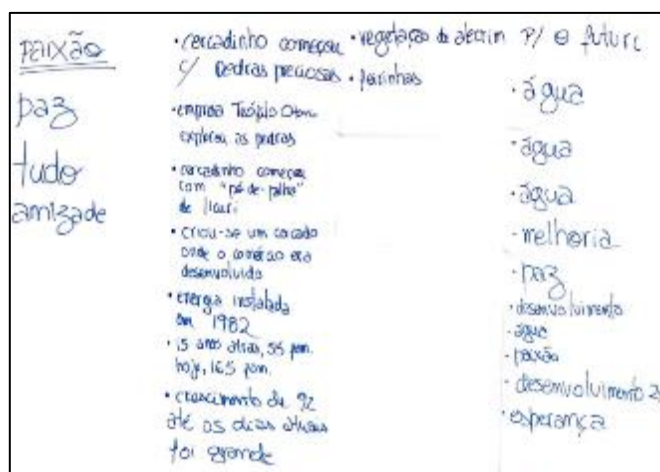 paixão
paz
tudo
amizade
• cercadinho começou
c/ pedras preciosas
• empresa Teófilo Otoni
explorou as pedras
• cercadinho começou
com "pé-de-palha"
de licuri
• criou-se um cercado
onde o comércio era
desenvolvido
• energia instalada
em 1982
• 15 anos atrás, 55 fam.
hoje, 165 fam.
• crescimento de 92
até os dias atuais
foi grande
• vegetação de alecrim
• feirinhas
P/ o futuro
• água
• água
• água
- melhoria
- paz
• desenvolvimento
• água
- paixão
- desenvolvimento
• esperança